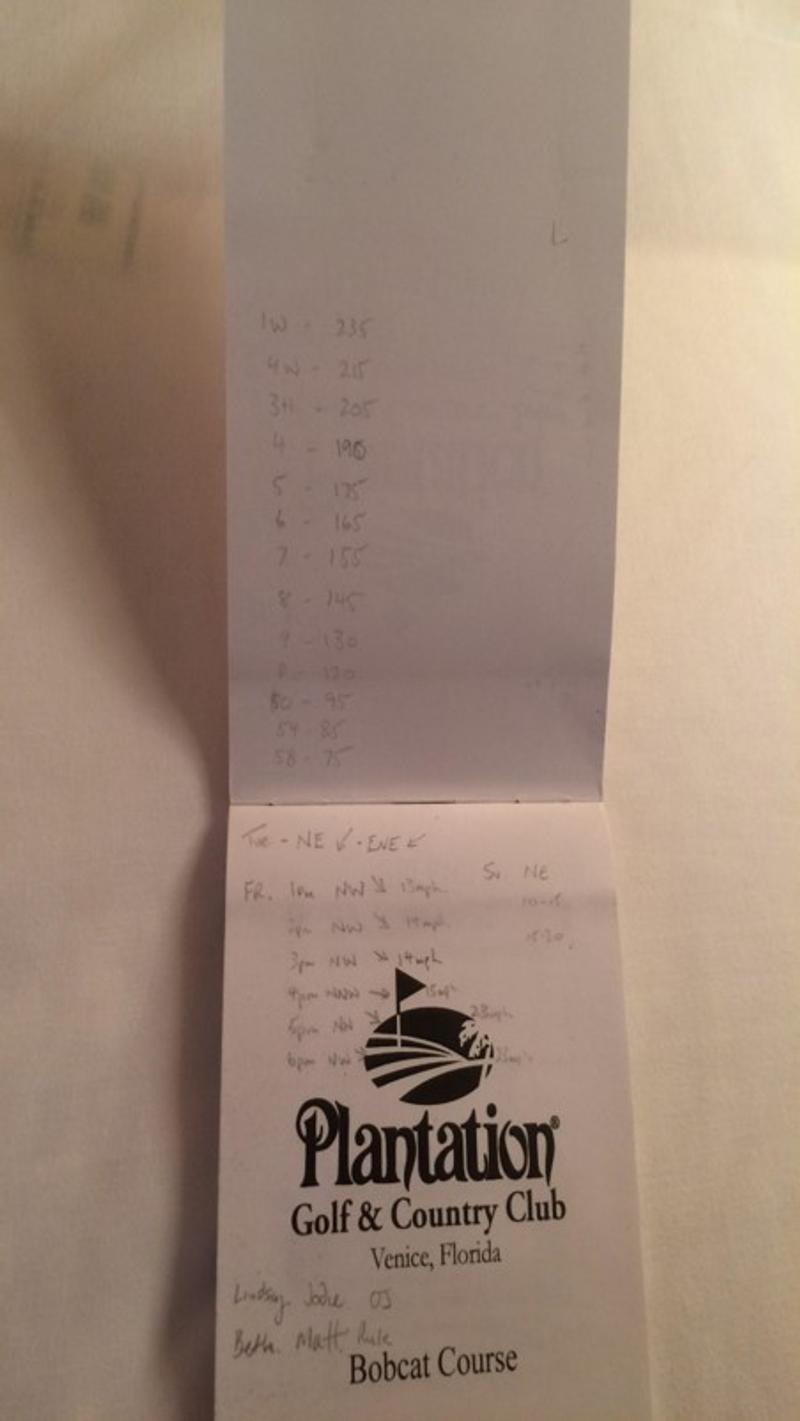 L
1W - 235
4W - 215
3H - 205
4 - 190
5 - 175
6 - 165
7 - 155
8 - 145
9 - 130
P - 120
50 - 95
54 - 85
58 - 75
Tue - NE ↙ - ENE ↙
FR. 1pm NW ↘ 13mph Su NE
2pm NW ↘ 14mph 10-15
3pm NW ↘ 14mph 15-20
4pm NNW → 15mph
5pm NW ↘ 23mph
6pm NW ↘ 23mph
Plantation®
Golf & Country Club
Venice, Florida
Lindsay. Jodie OJ
Beth. Matt Rule
Bobcat Course